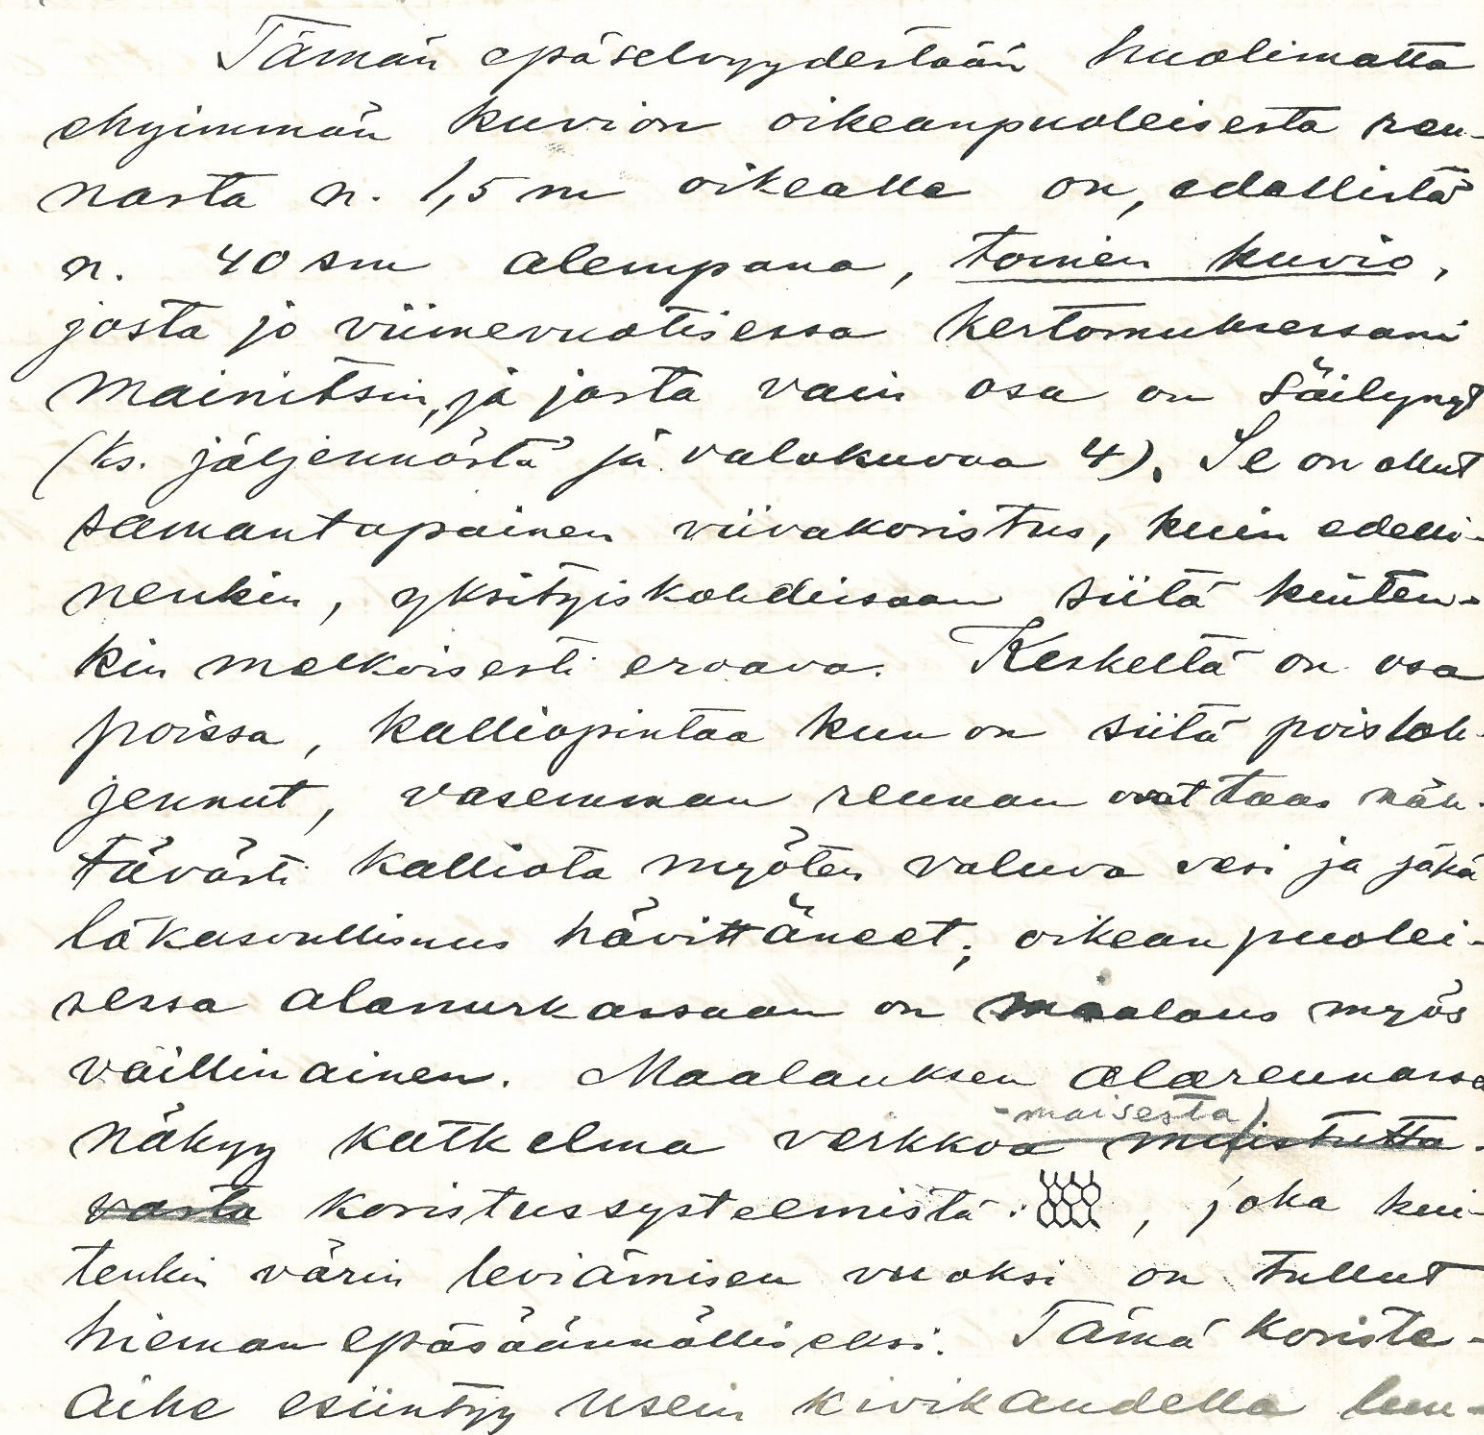 Tämän epäselvyydestään huolimatta
ehyimmän kuvion oikeanpuoleisesta reu-
nasta n. 1,5 m oikealle on, edellistä
n. 40 sm alempana, toinen kuvio,
josta jo viimevuotisessa kertomuksessani
mainitsin, ja josta vain osa on säilynyt
(ks. jäljennöstä ja valokuvaa 4). Se on ollut
samantapainen viivakoristus, kuin edelli-
nenkin, yksityiskohdissaan siitä kuiten-
kin melkoisesti eroava. Keskeltä on osa
poissa, kalliopintaa kun on siitä pois loh-
jennut, vasemman reunan ovat taas näh-
tävästi kalliota myöten valuva vesi ja jäkä
läkasvullisuus hävittäneet; oikean puolei-
sessa alanurkassaan on maalaus myös
vaillinainen. Maalauksen alareunassa
-maisesta)
näkyy katkelma verkkoa muistutta-
vasta koristussysteemistä: , joka kui-
tenkin värin leviämisen vuoksi on tullut
hieman epäsäännölliseksi. Tämä koriste-
aihe esiintyy usein kivikaudella luu-